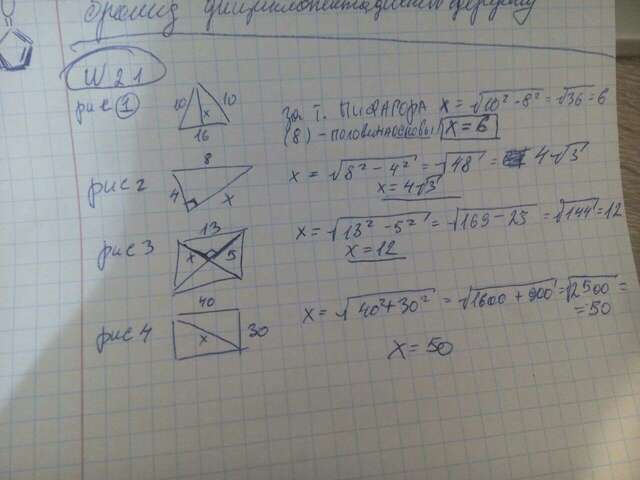 бромид
№21
рис 1
10 x 10
16
За т. ПИФАГОРА x = √10² - 8² = √36 = 6
(8) - половина основы x = 6
рис 2
8
4 x
x = √8² - 4² = √48 = 4√3
x = 4√3
рис 3
13
x 5
x = √13² - 5² = √169 - 25 = √144 = 12
x = 12
рис 4
40
30
x
x = √40² + 30² = √1600 + 900 = √2500 =
= 50
x = 50